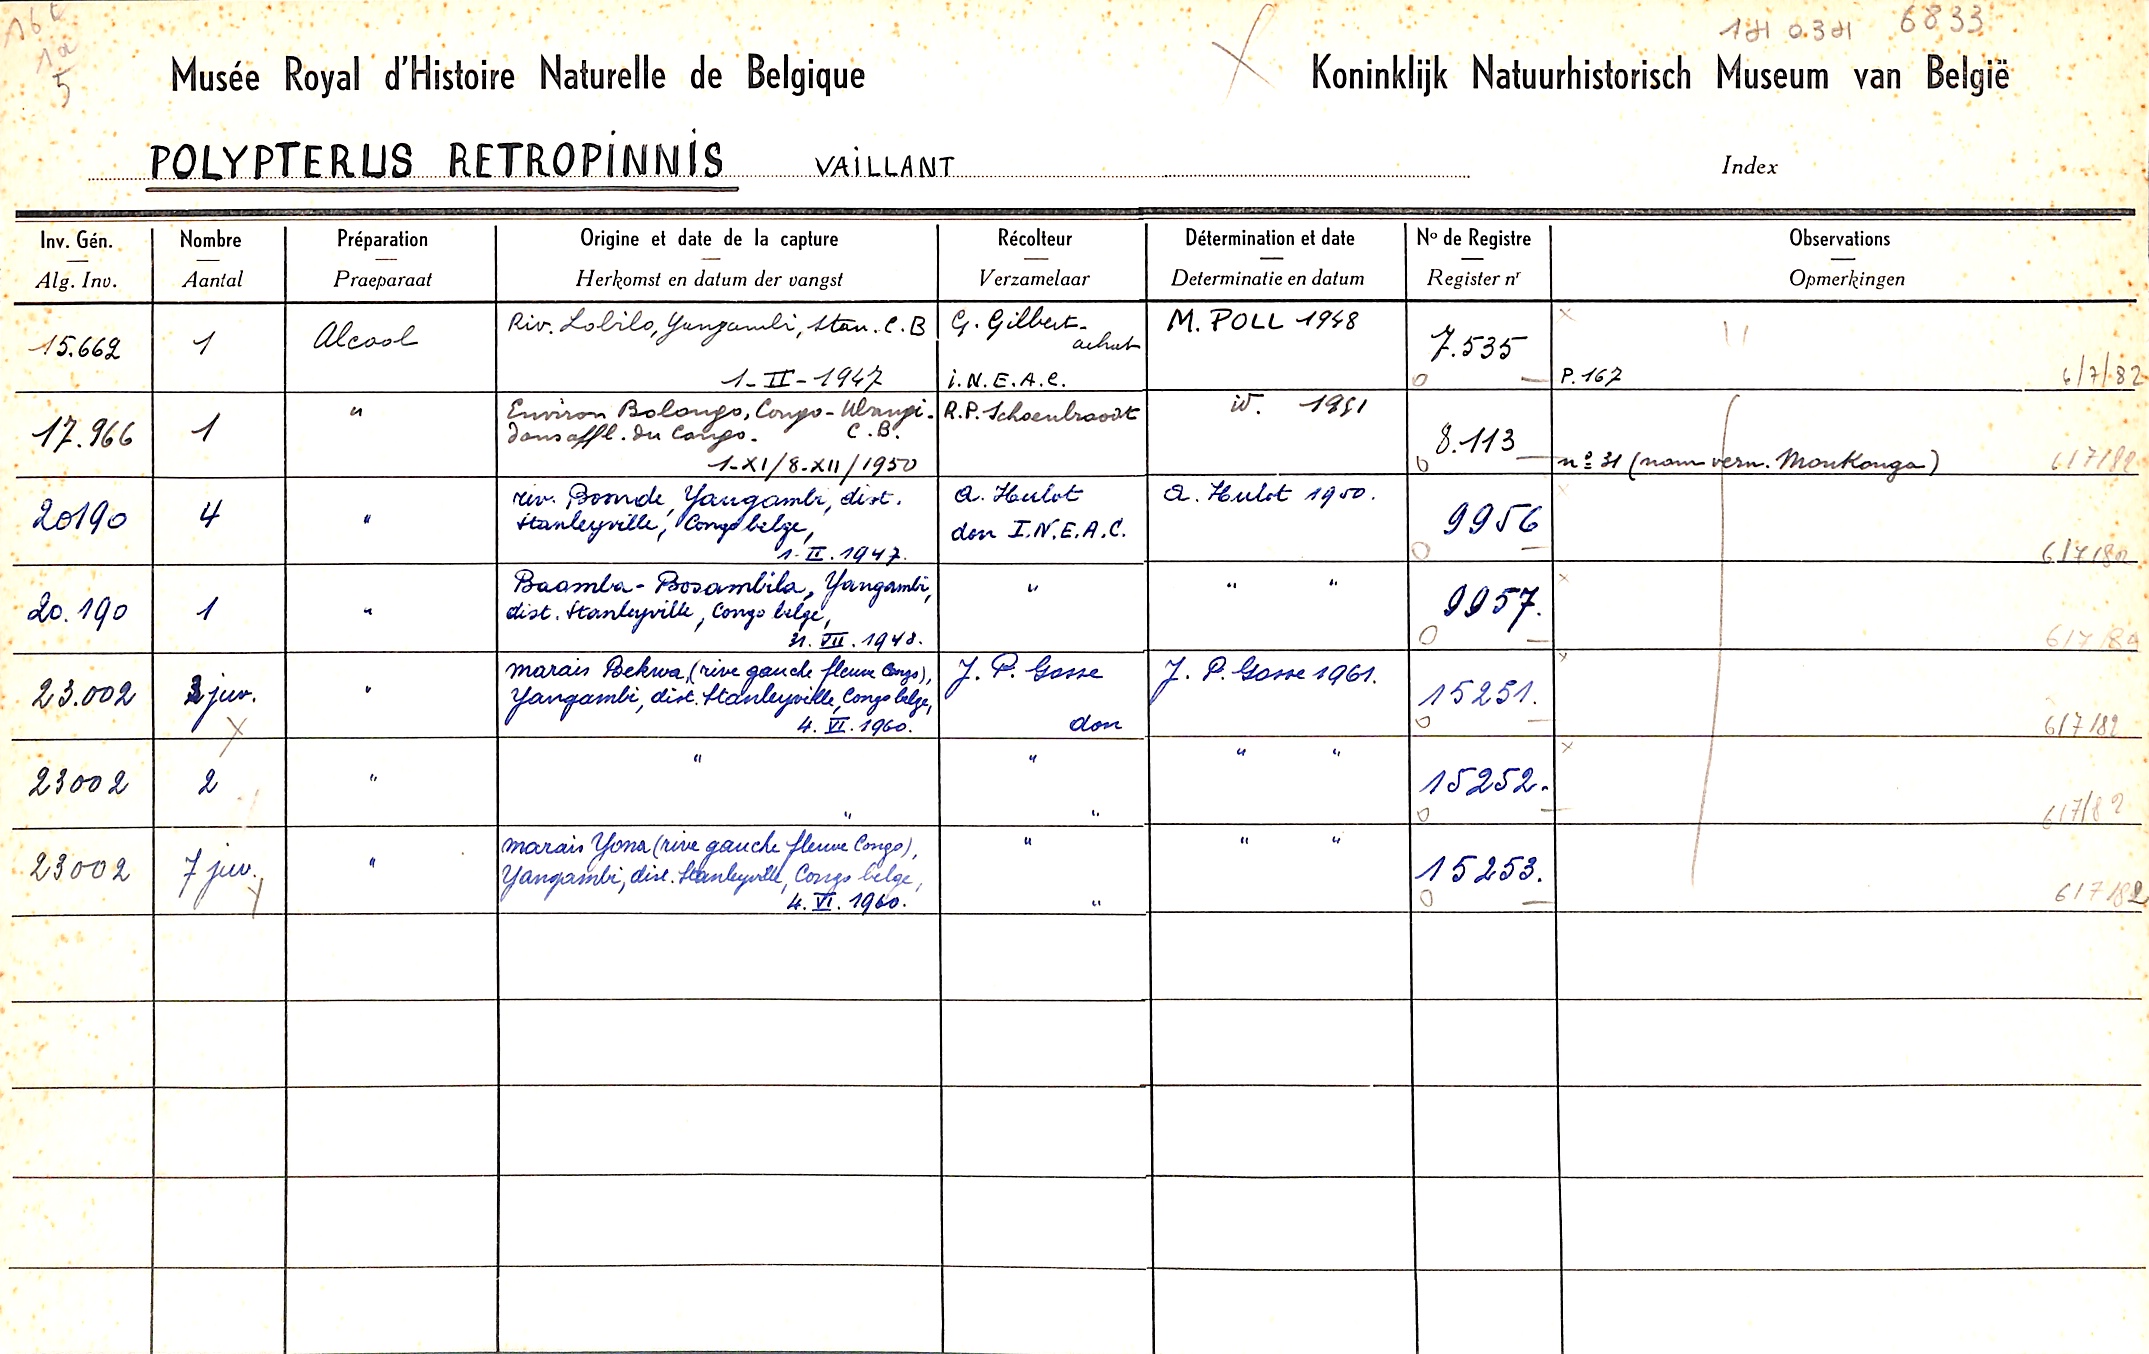 16t
1a
5
1H 03H 6833
Musée Royal d'Histoire Naturelle de Belgique
Koninklijk Natuurhistorisch Museum van België
POLYPTERUS RETROPINNIS VAILLANT
Index
Inv. Gén. Nombre Préparation Origine et date de la capture Récolteur Détermination et date No de Registre Observations
Alg. Inv. Aantal Praeparaat Herkomst en datum der vangst Verzamelaar Determinatie en datum Register nr Opmerkingen
15.662 1 Alcool Riv. Lobilo, Yangambi, Stan. C.B G. Gilbert - achat M. POLL 1948 7.535
1-II-1947 I.N.E.A.C. P. 167 6/7/82
17.966 1 " Environ Bolongo, Congo-Ubangi. R.P. Schoenbraodt id. 1951 8.113
dans affl. du Congo. C.B.
1-XI/8-XII/1950 no 31 (nom vern. Monkonga) 6/7/82
20190 4 " riv. Bomde, Yangambi, dist. A. Hulot A. Hulot 1950. 9956
Stanleyville, Congo belge, don I.N.E.A.C.
1.II.1947. 6/7/82
20.190 1 " Baamba-Bosambila, Yangambi, " " " 9957.
dist. Stanleyville, Congo belge,
31.VII.1948. 6/7/82
23.002 3 juv. " marais Bekwa, (rive gauche fleuve Congo), J. P. Gosse J. P. Gosse 1961. 15251.
Yangambi, dist. Stanleyville, Congo belge,
4.VI.1960. don 6/7/82
23002 2 " " " " " 15252.
" " 6/7/82
23002 7 juv. " marais Yona (rive gauche fleuve Congo), " " " 15253.
Yangambi, dist. Stanleyville, Congo belge,
4.VI.1960. " 6/7/82